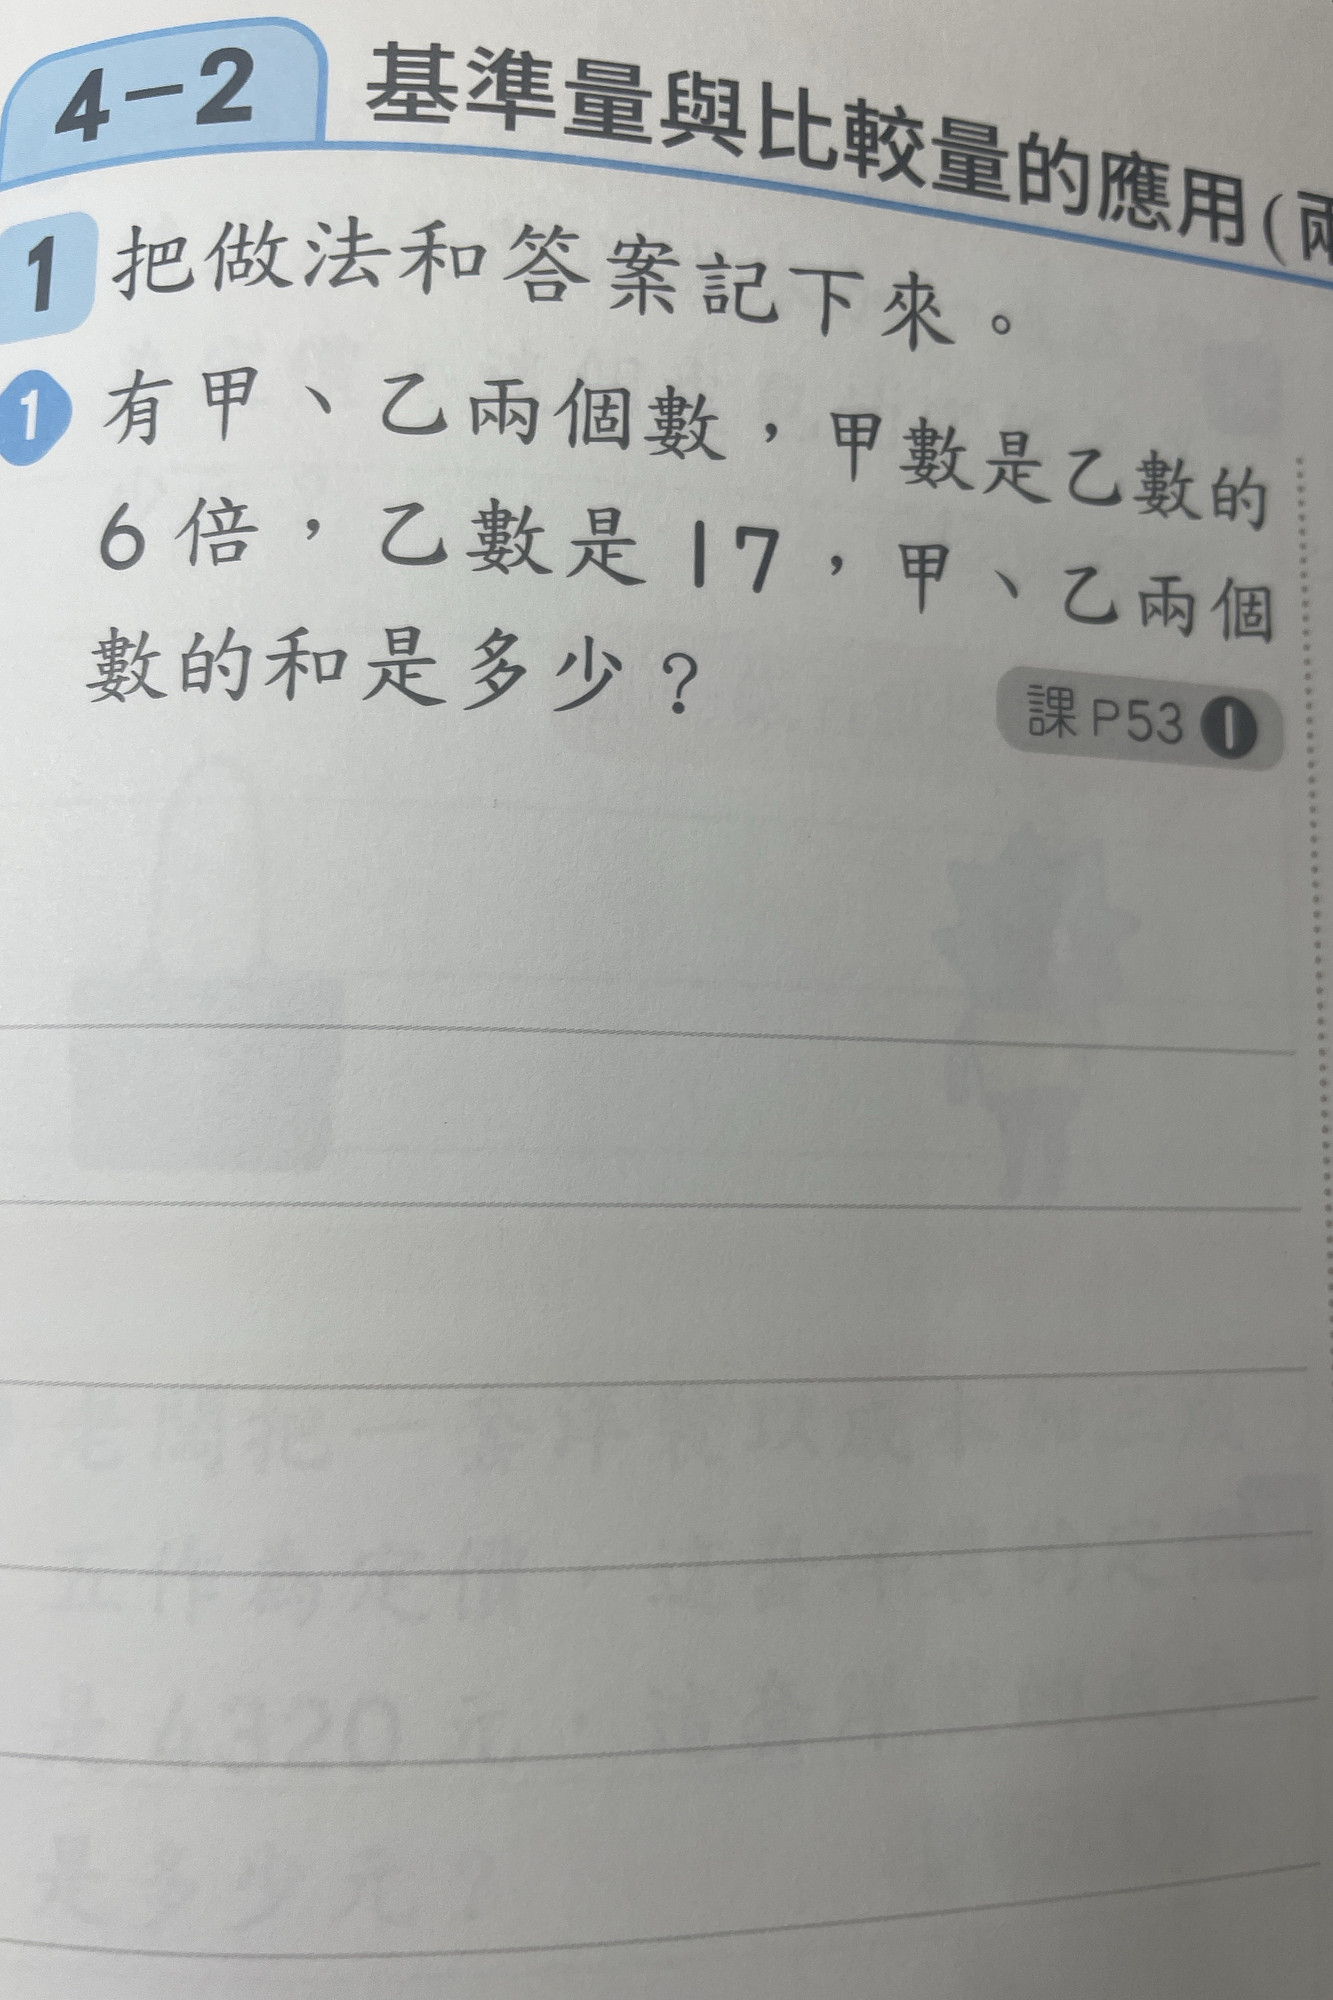 4-2 基準量與比較量的應用(兩
1 把做法和答案記下來。
1 有甲、乙兩個數,甲數是乙數的
6倍,乙數是17,甲、乙兩個
數的和是多少?
課P53 1